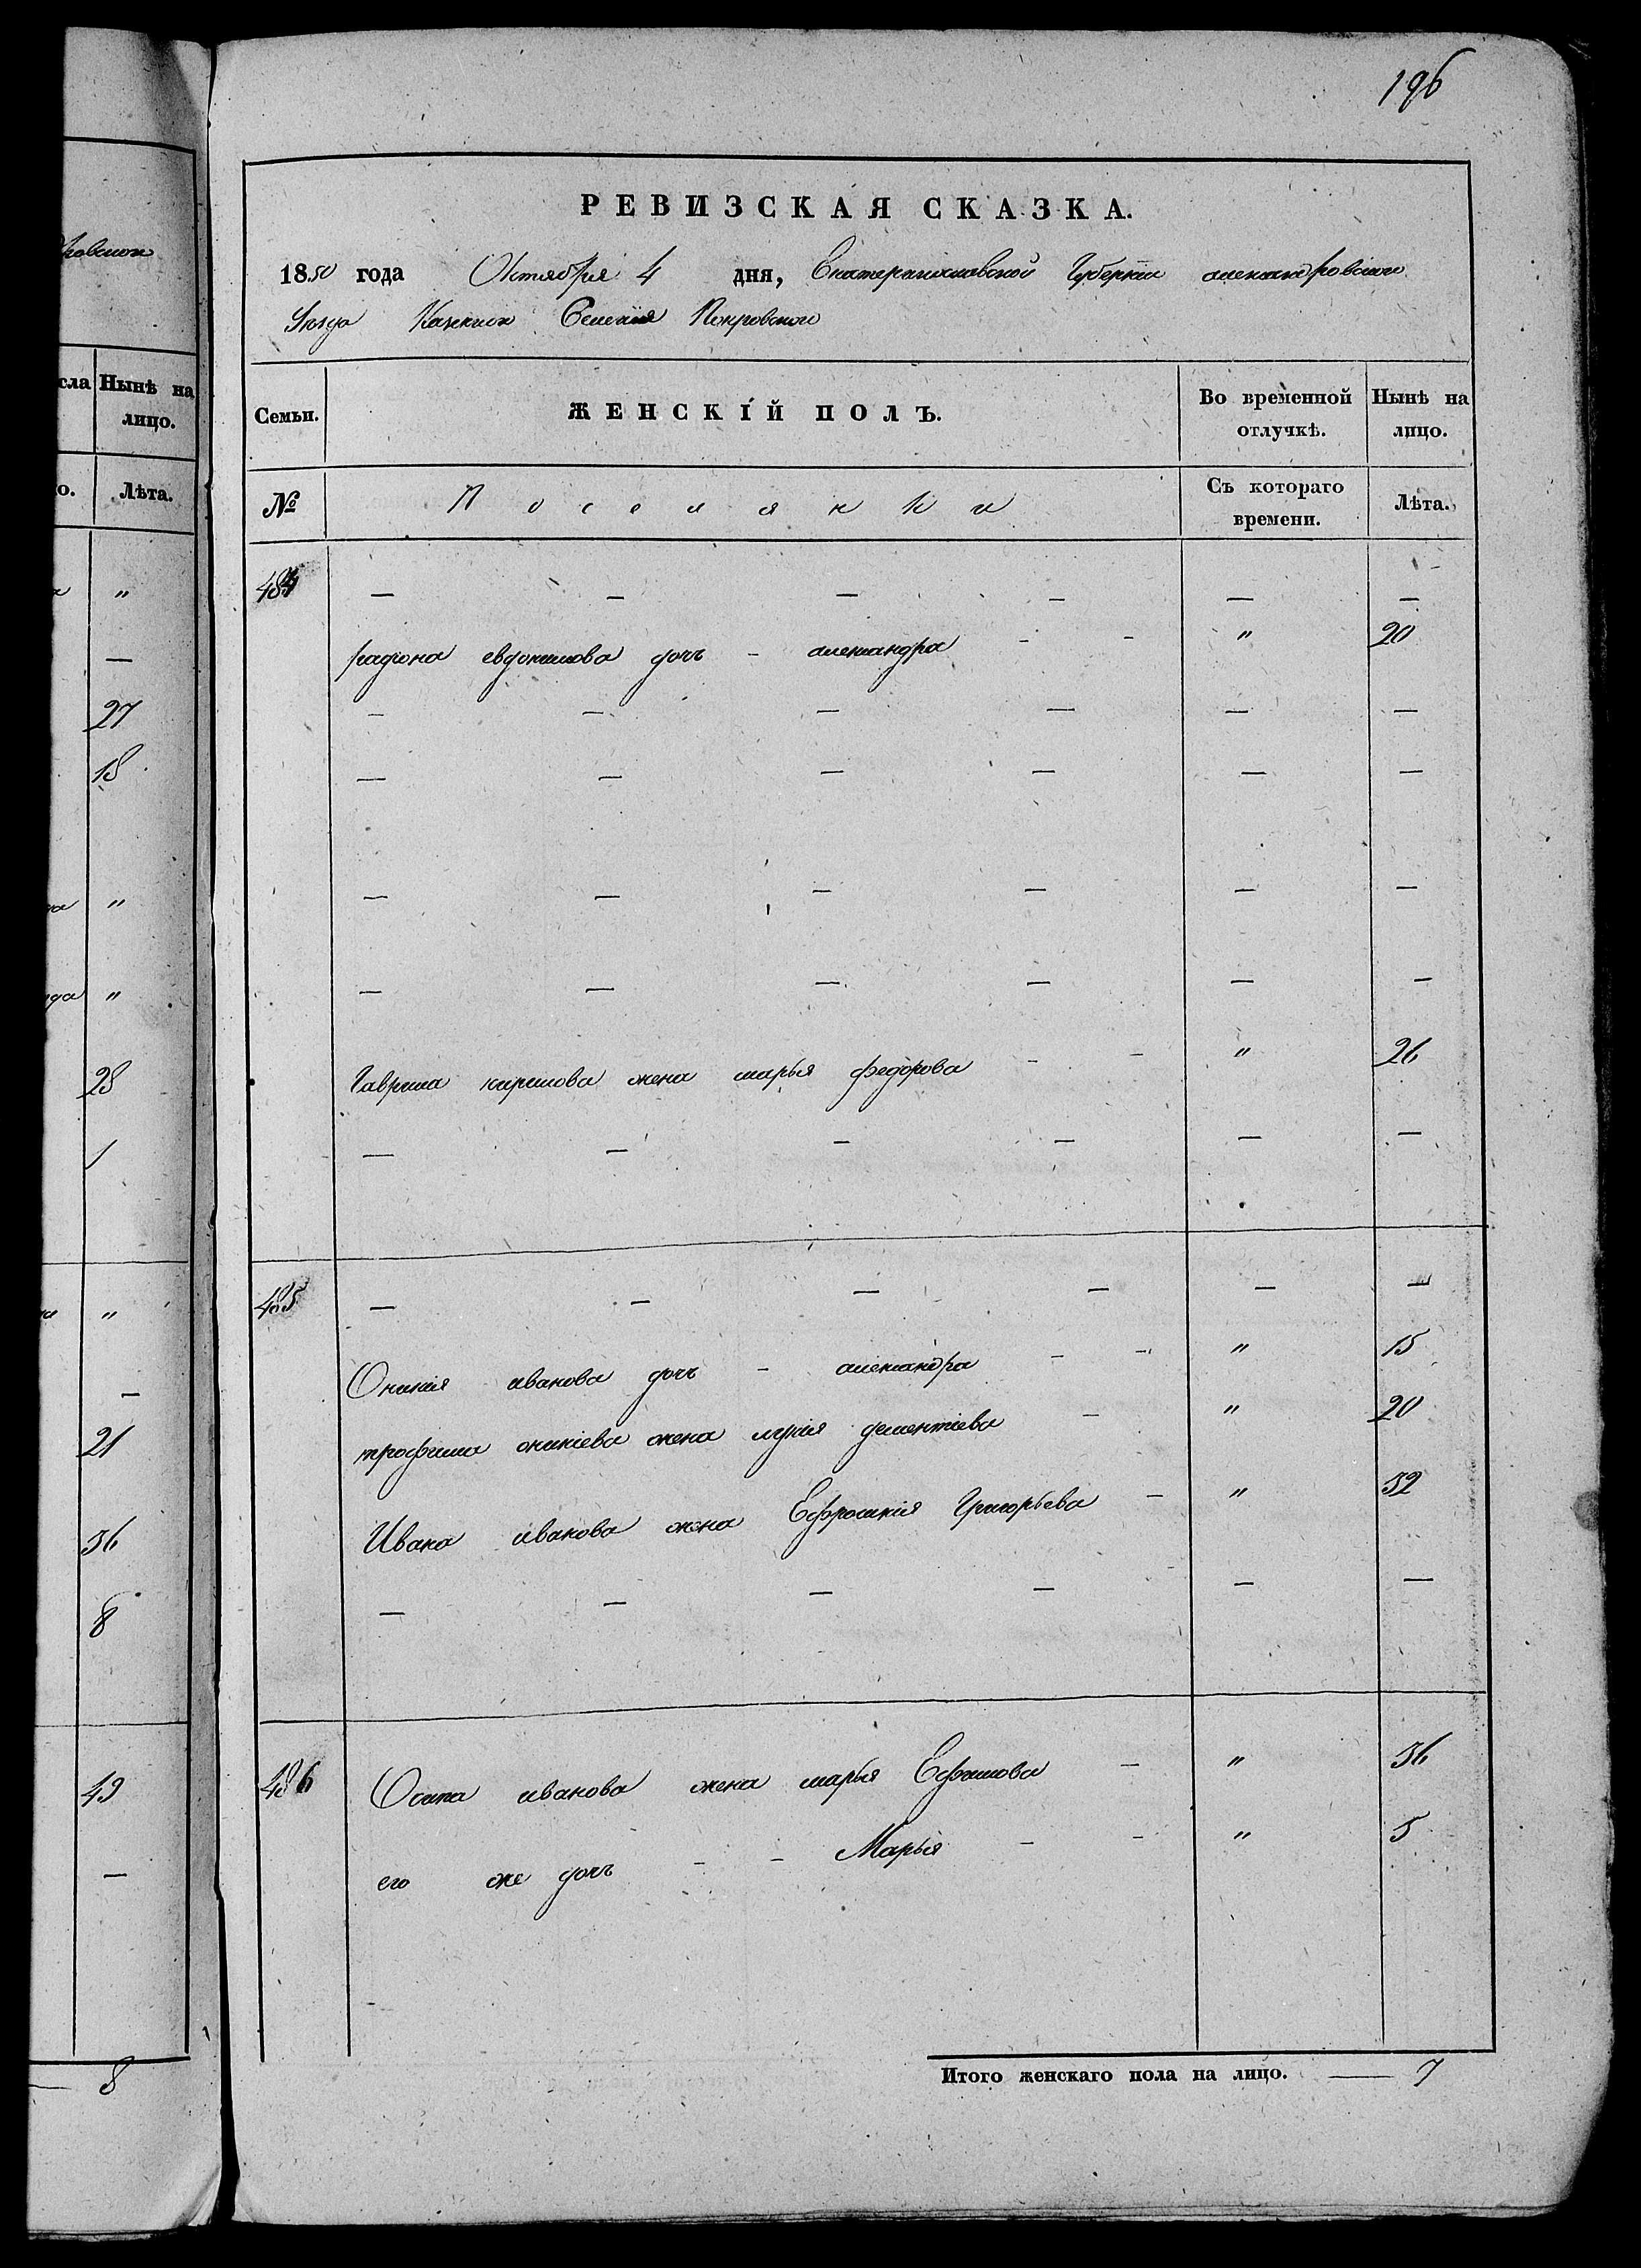 196
РЕВИЗСКАЯ СКАЗКА.
1850 года Октября 4 дня, Екатеринославской Губернии александровского
Уезда Казенного Селения Покровского
Семьи. ЖЕНСКІЙ ПОЛЪ. Во временной отлучкѣ. Нынѣ на лицо.
№ Поселянки Съ котораго времени. Лѣта.
484 — — — — — —
радіона евдокимова дочь - александра - - " 20
— — — — — —
— — — — — —
— — — — — —
— — — — — —
Гаврила кирилова жена марья федорова - - " 26
— — — — — —
485 — — — — — —
Оникія иванова дочь - александра - - " 15
трофима оникіева жена лукія дементіева - " 20
Ивана иванова жена Ефросинія Григорьева - " 32
— — — — — —
486 Осипа иванова жена марья Ефимова - " 36
его же дочь - - Марья - - " 5
Итого женскаго пола на лицо. — 7
сла Нынѣ на
лицо.
о. Лѣта.
"
—
27
18
"
"
28
1
"
—
21
36
8
49
—
— 8